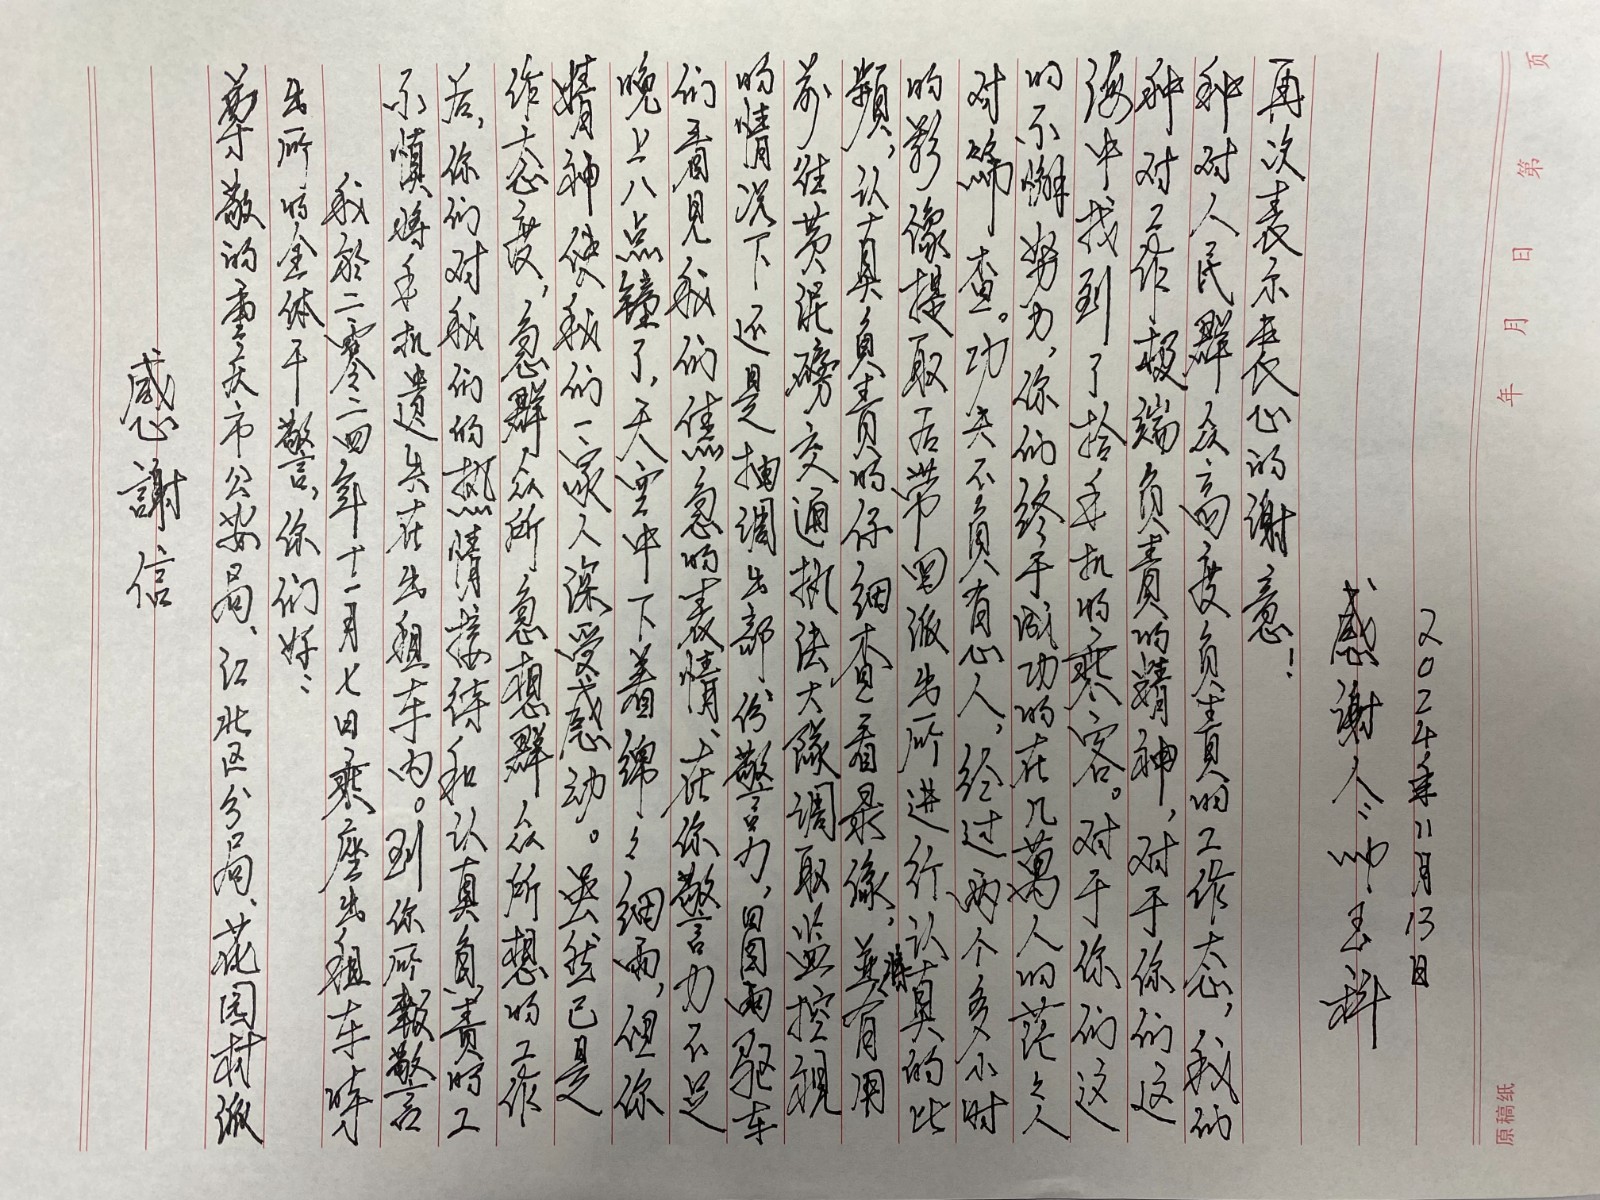 感謝信
尊敬的重庆市公安局、江北区分局、花园村派
出所的全体干警,你们好:
我於二零二四年十一月七日乘座出租车時
不慎将手机遗失在出租车内。到你所報警
后,你们对我们的热情接待和认真負责的工
作态度,急群众所急想群众所想的工作
精神使我们一家人深受感动。虽然已是
晚上八点鐘了,天空中下着绵々细雨,但你
们看见我们焦急的表情、在你警力不足
的情况下还是抽調出部份警力,冒雨驱车
前往黄泥磅交通执法大隊調取监控視
頻,认真負责的仔细查看录像,並将有用
的影像提取后带回派出所进行认真的比
对筛查。功夫不負有心人,经过两个多小时
的不懈努力,你们终于成功的在几萬人的茫々人
海中找到了拾手机的乘客。对于你们这
种对工作极端负責的精神,对于你们这
种对人民群众高度负責的工作态,我们
再次表示衷心的谢意!
感谢人:帅玉科
2024年11月13日
年 月 日 第 页
原稿纸